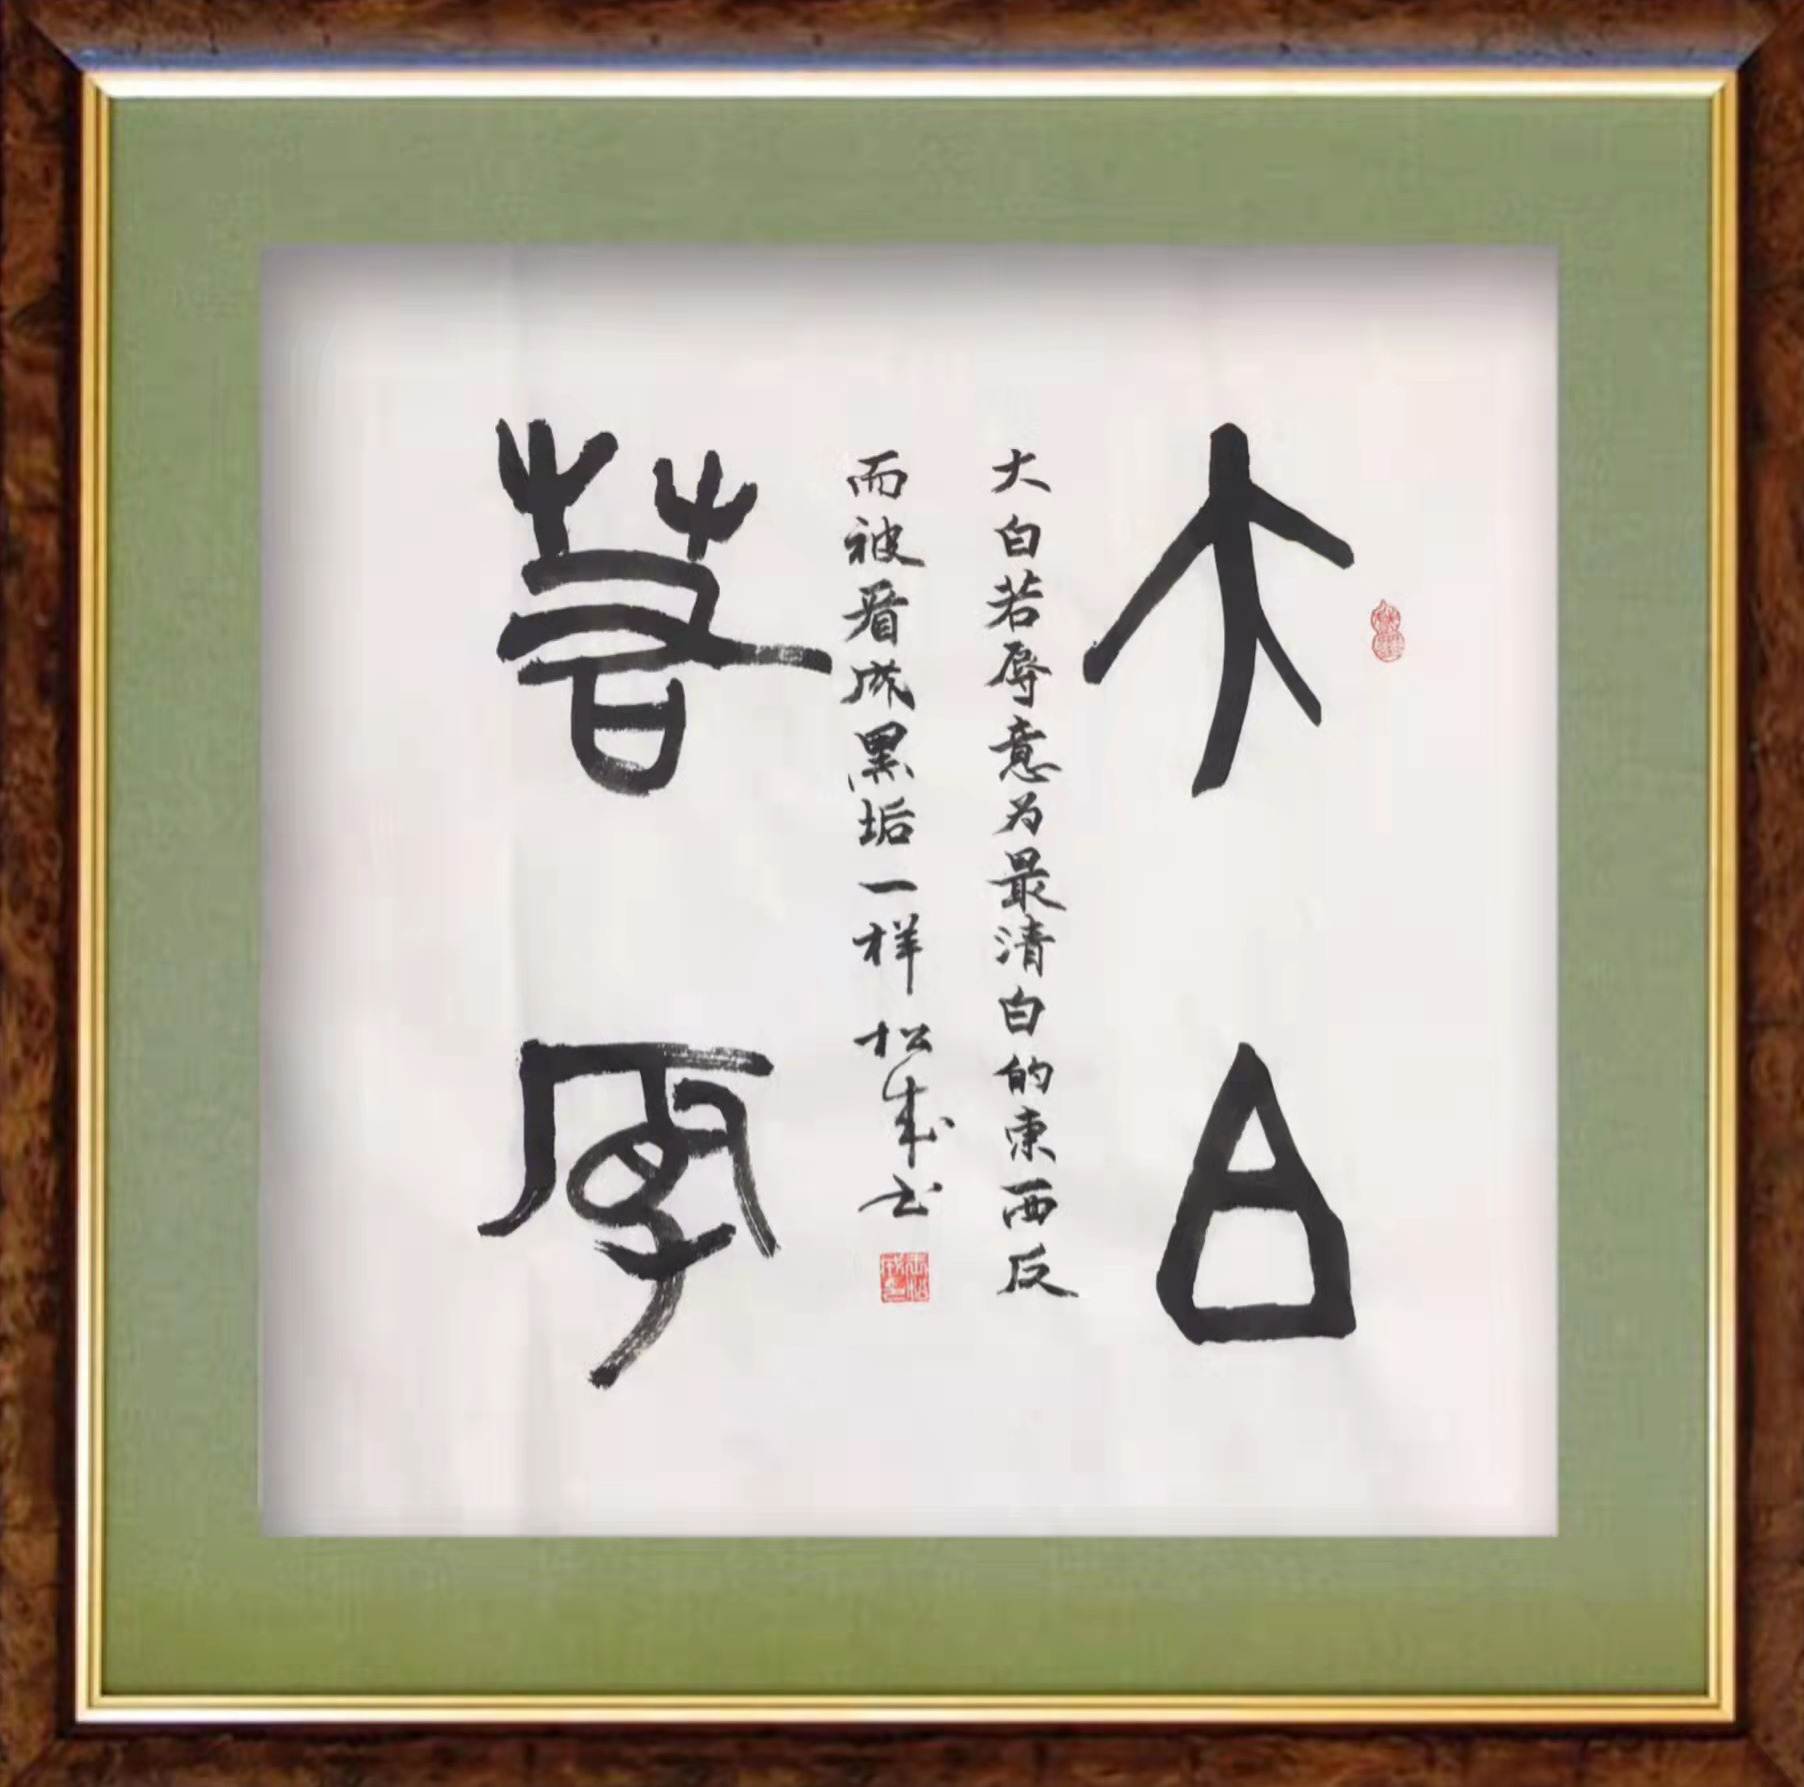 大白
若辱
大白若辱意为最清白的東西反
而被看成黑垢一样 松成书